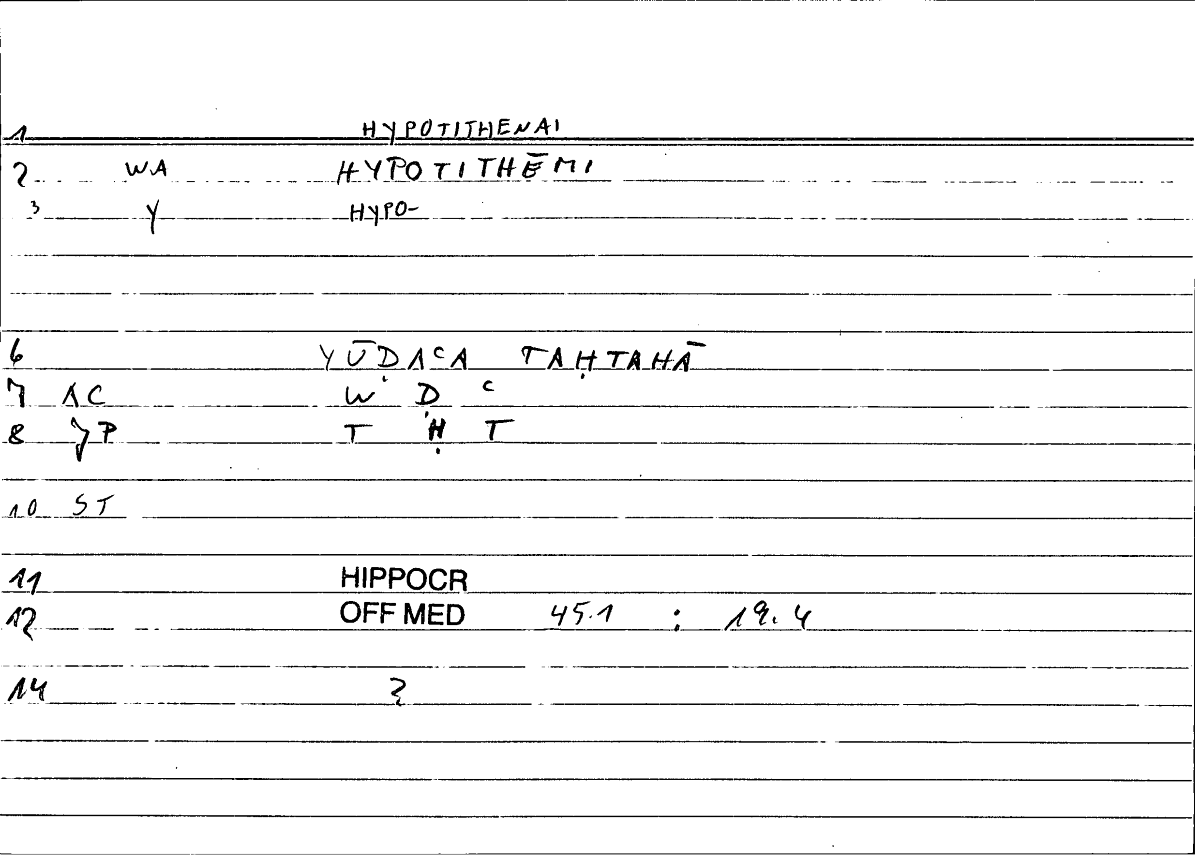 1 HYPOTITHENAI
2 WA HYPOTITHĒMI
3 Y HYPO-
6 YŪḌAʿA TAḤTAHĀ
7 AC W Ḍ ʿ
8 JP T Ḥ T
10 ST
11 HIPPOCR
12 OFF MED 45.1 : 19.4
14 2